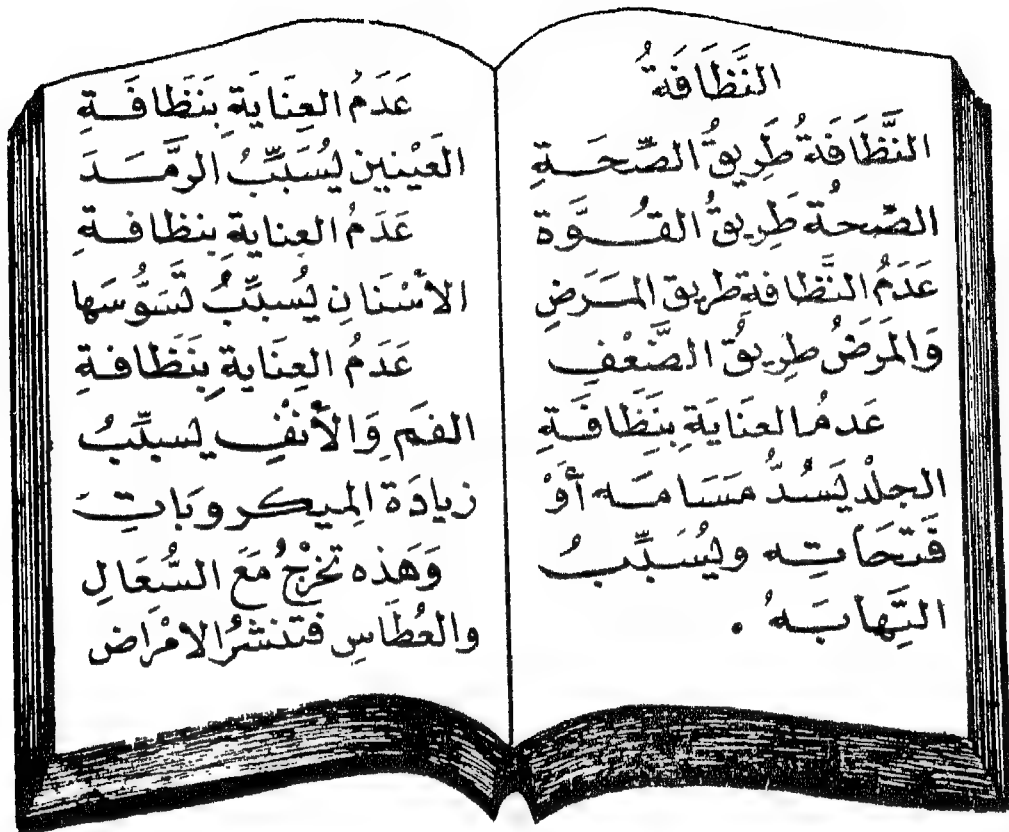 النَّظَافَةُ
النَّظَافَةُ طَرِيقُ الصِّحَةِ
الصِّحةُ طَرِيقُ القُوَّة
عَدَمُ النَّظافةِ طريق المَرَضِ
وَالمَرَضُ طَرِيقُ الضَّعْفِ
عَدمُ العنَايَةِ بِنَظَافَةِ
الجلْد يَسُدُّ مَسَامَه أوْ
فَتَحَاتِه ويُسَبِّبُ
التِهابَهُ .
عَدَمُ العِنَايَةِ بِنَظَافَةِ
العَيْنين يُسَبِّبُ الرَّمَدَ
عَدَمُ العِنايةِ بِنظافةِ
الأسْنَانِ يُسبِّبُ تَسَوُّسَها
عَدَمُ العِنَايةِ بِنَظَافةِ
الفَمِ وَالأنفِ يسبِّبُ
زيادَة المِيكروبَاتِ
وَهَذه تَخْرُجُ مَعَ السُّعَالِ
والعُطَاسِ فتَنشرُ الامْرَاض